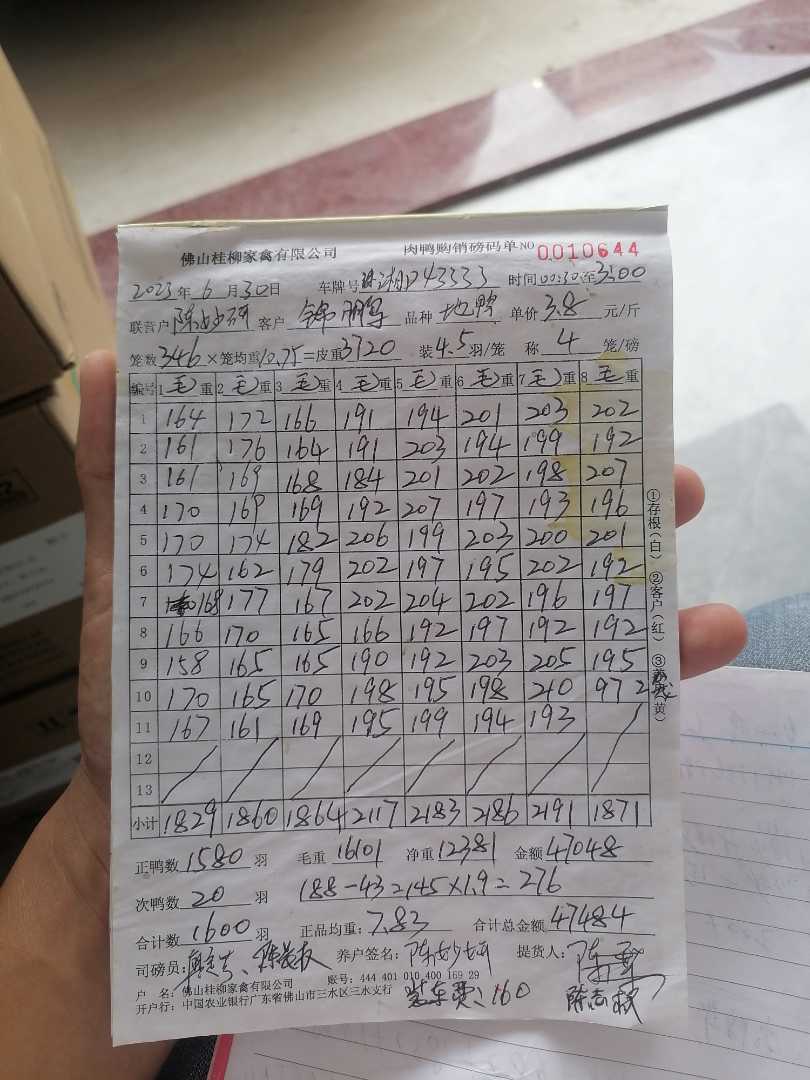 佛山桂柳家禽有限公司 肉鸭购销磅码单 NO 0010644
2023年6月30日 车牌号 湘D43333 时间 00:30至3:00
联营户 陈 客户 锦 品种 地鸭 单价 3.8 元/斤
笼数 346 ×笼均重 10.75 =皮重 3720 装 4.5 羽/笼 称 4 笼/磅
编号 1 毛重 2 毛重 3 毛重 4 毛重 5 毛重 6 毛重 7 毛重 8 毛重
1 164 172 166 191 194 201 203 202
2 161 176 164 191 203 194 199 192
3 161 169 168 184 201 202 198 207
4 170 169 169 192 207 197 193 196
5 170 174 182 206 199 203 200 201
6 174 162 179 202 197 195 202 192
7 168 177 167 202 204 202 196 197
8 166 170 165 166 192 197 192 192
9 158 165 165 190 192 203 205 195
10 170 165 170 198 195 198 210 97 2
11 167 161 169 195 199 194 193
12
13
小计 1829 1860 1864 2117 2183 2186 2191 1871
①存根(白) ②客户(红) ③ 黄)
正鸭数 1580 羽 毛重 16101 净重 12381 金额 47048
次鸭数 20 羽 188-43=145×1.9=276
合计数 1600 羽 正品均重: 7.83 合计总金额 47484
司磅员: 陈 养户签名: 陈 提货人: 陈
户 名: 佛山桂柳家禽有限公司 账号: 444 401 010 400 169 29
开户行: 中国农业银行广东省佛山市三水区三水支行 装车费: 160 陈志